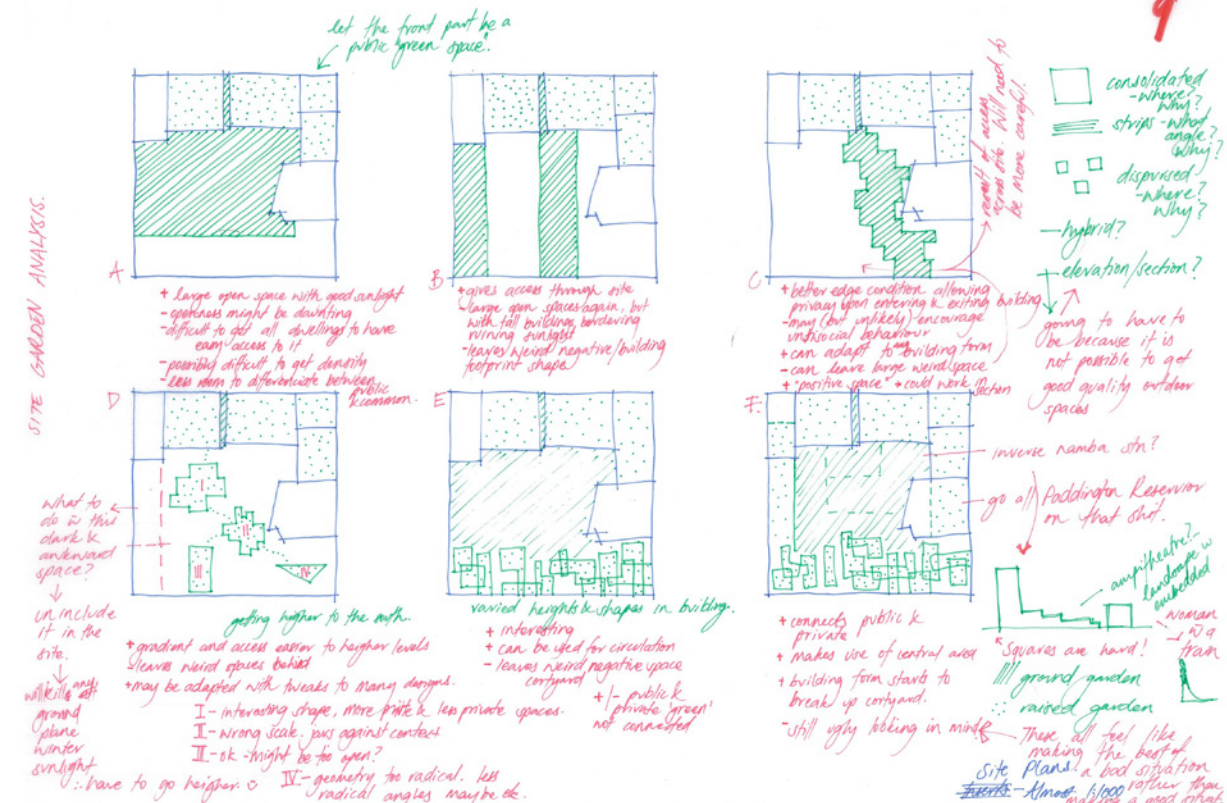 9
let the front part be a
public "green space".
SITE GARDEN ANALYSIS.
A
+ large open space with good sunlight
- openness might be daunting
- difficult to get all dwellings to have
easy access to it
- possibly difficult to get density
- less room to differenciate between
public
& common.
B
+ gives access through site
- large open spaces again, but
with tall buildings bordering
ruining sunlight
- leaves weird negative/building
footprint shape
C
+ better edge condition allowing
privacy upon entering & exiting building
- may (but unlikely) encourage
unsocial behaviour
+ can adapt to building form
- can leave large weird space
+ "positive space" → could work in
section
result of access
across site. Will need to
be more careful.
consolidated
- where?
why?
strips - what
angle?
why?
dispursed
- where?
why?
- hybrid?
+ elevation/section?
going to have to
be because it is
not possible to get
good quality outdoor
spaces
D
I
II
III
IV
what to
do w this
dark &
awkward
space?
un include
it in the
site.
will kill any
ground
plane
winter
sunlight
∴ have to go heigher.
getting higher to the
+ gradient and access easier to heigher levels
- leaves weird spaces behind
+ may be adapted with tweaks to many designs.
I - interesting shape, more private & less private spaces.
II - wrong scale. jars against context
III - ok - might be too open?
IV - geometry too radical. less
radical angles maybe ok.
E
varied heights & shapes in building.
+ interesting
+ can be used for circulation
- leaves weird negative space
cortyard
+/- public &
private 'green'
not connected
F.
+ connects public &
private
+ makes use of central area
+ building form starts to
break up cortyard.
- still ugly looking in mind
inverse namba stn?
go all Paddington Reservior
on that shot.
ampitheatre?
landscape w
embedded
woman
w a
train
"Squares are hard!
ground garden
raised garden
These all feel like
making the best of
a bad situation
rather than
making a good
Site Plans.
- Almost 1:1000